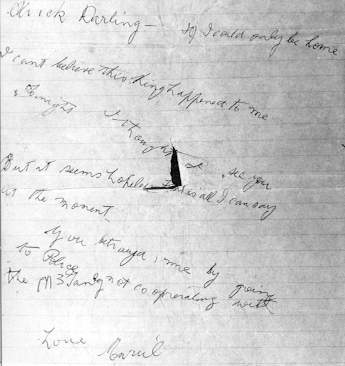 Chuck Darling – If I could only be home
I cant believe this thing happened to me
Tonight I thought I see you
But it seems hopeless This is all I can say
at the moment
You betrayed me by going
to Police
the not cooperating with
Love
Caril